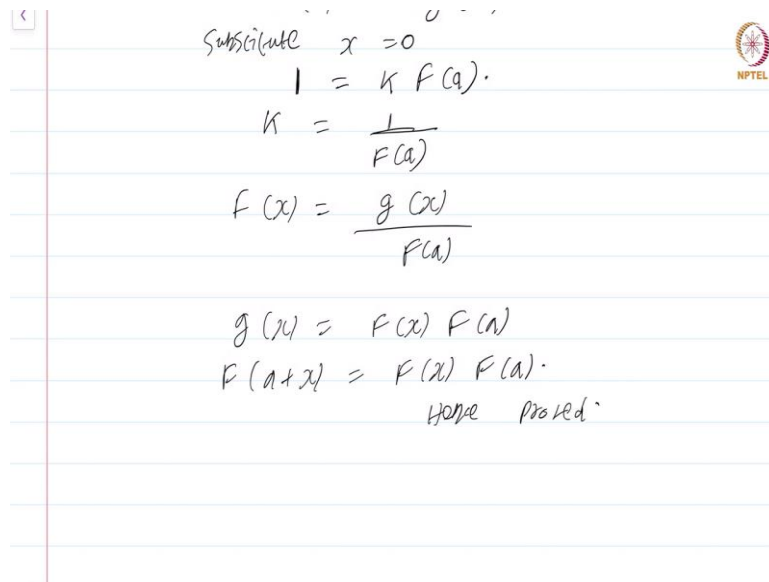 Substitute x = 0
NPTEL
1 = K F(a).
K = 1 / F(a)
F(x) = g(x) / F(a)
g(x) = F(x) F(a)
F(a+x) = F(x) F(a).
Hence proved.